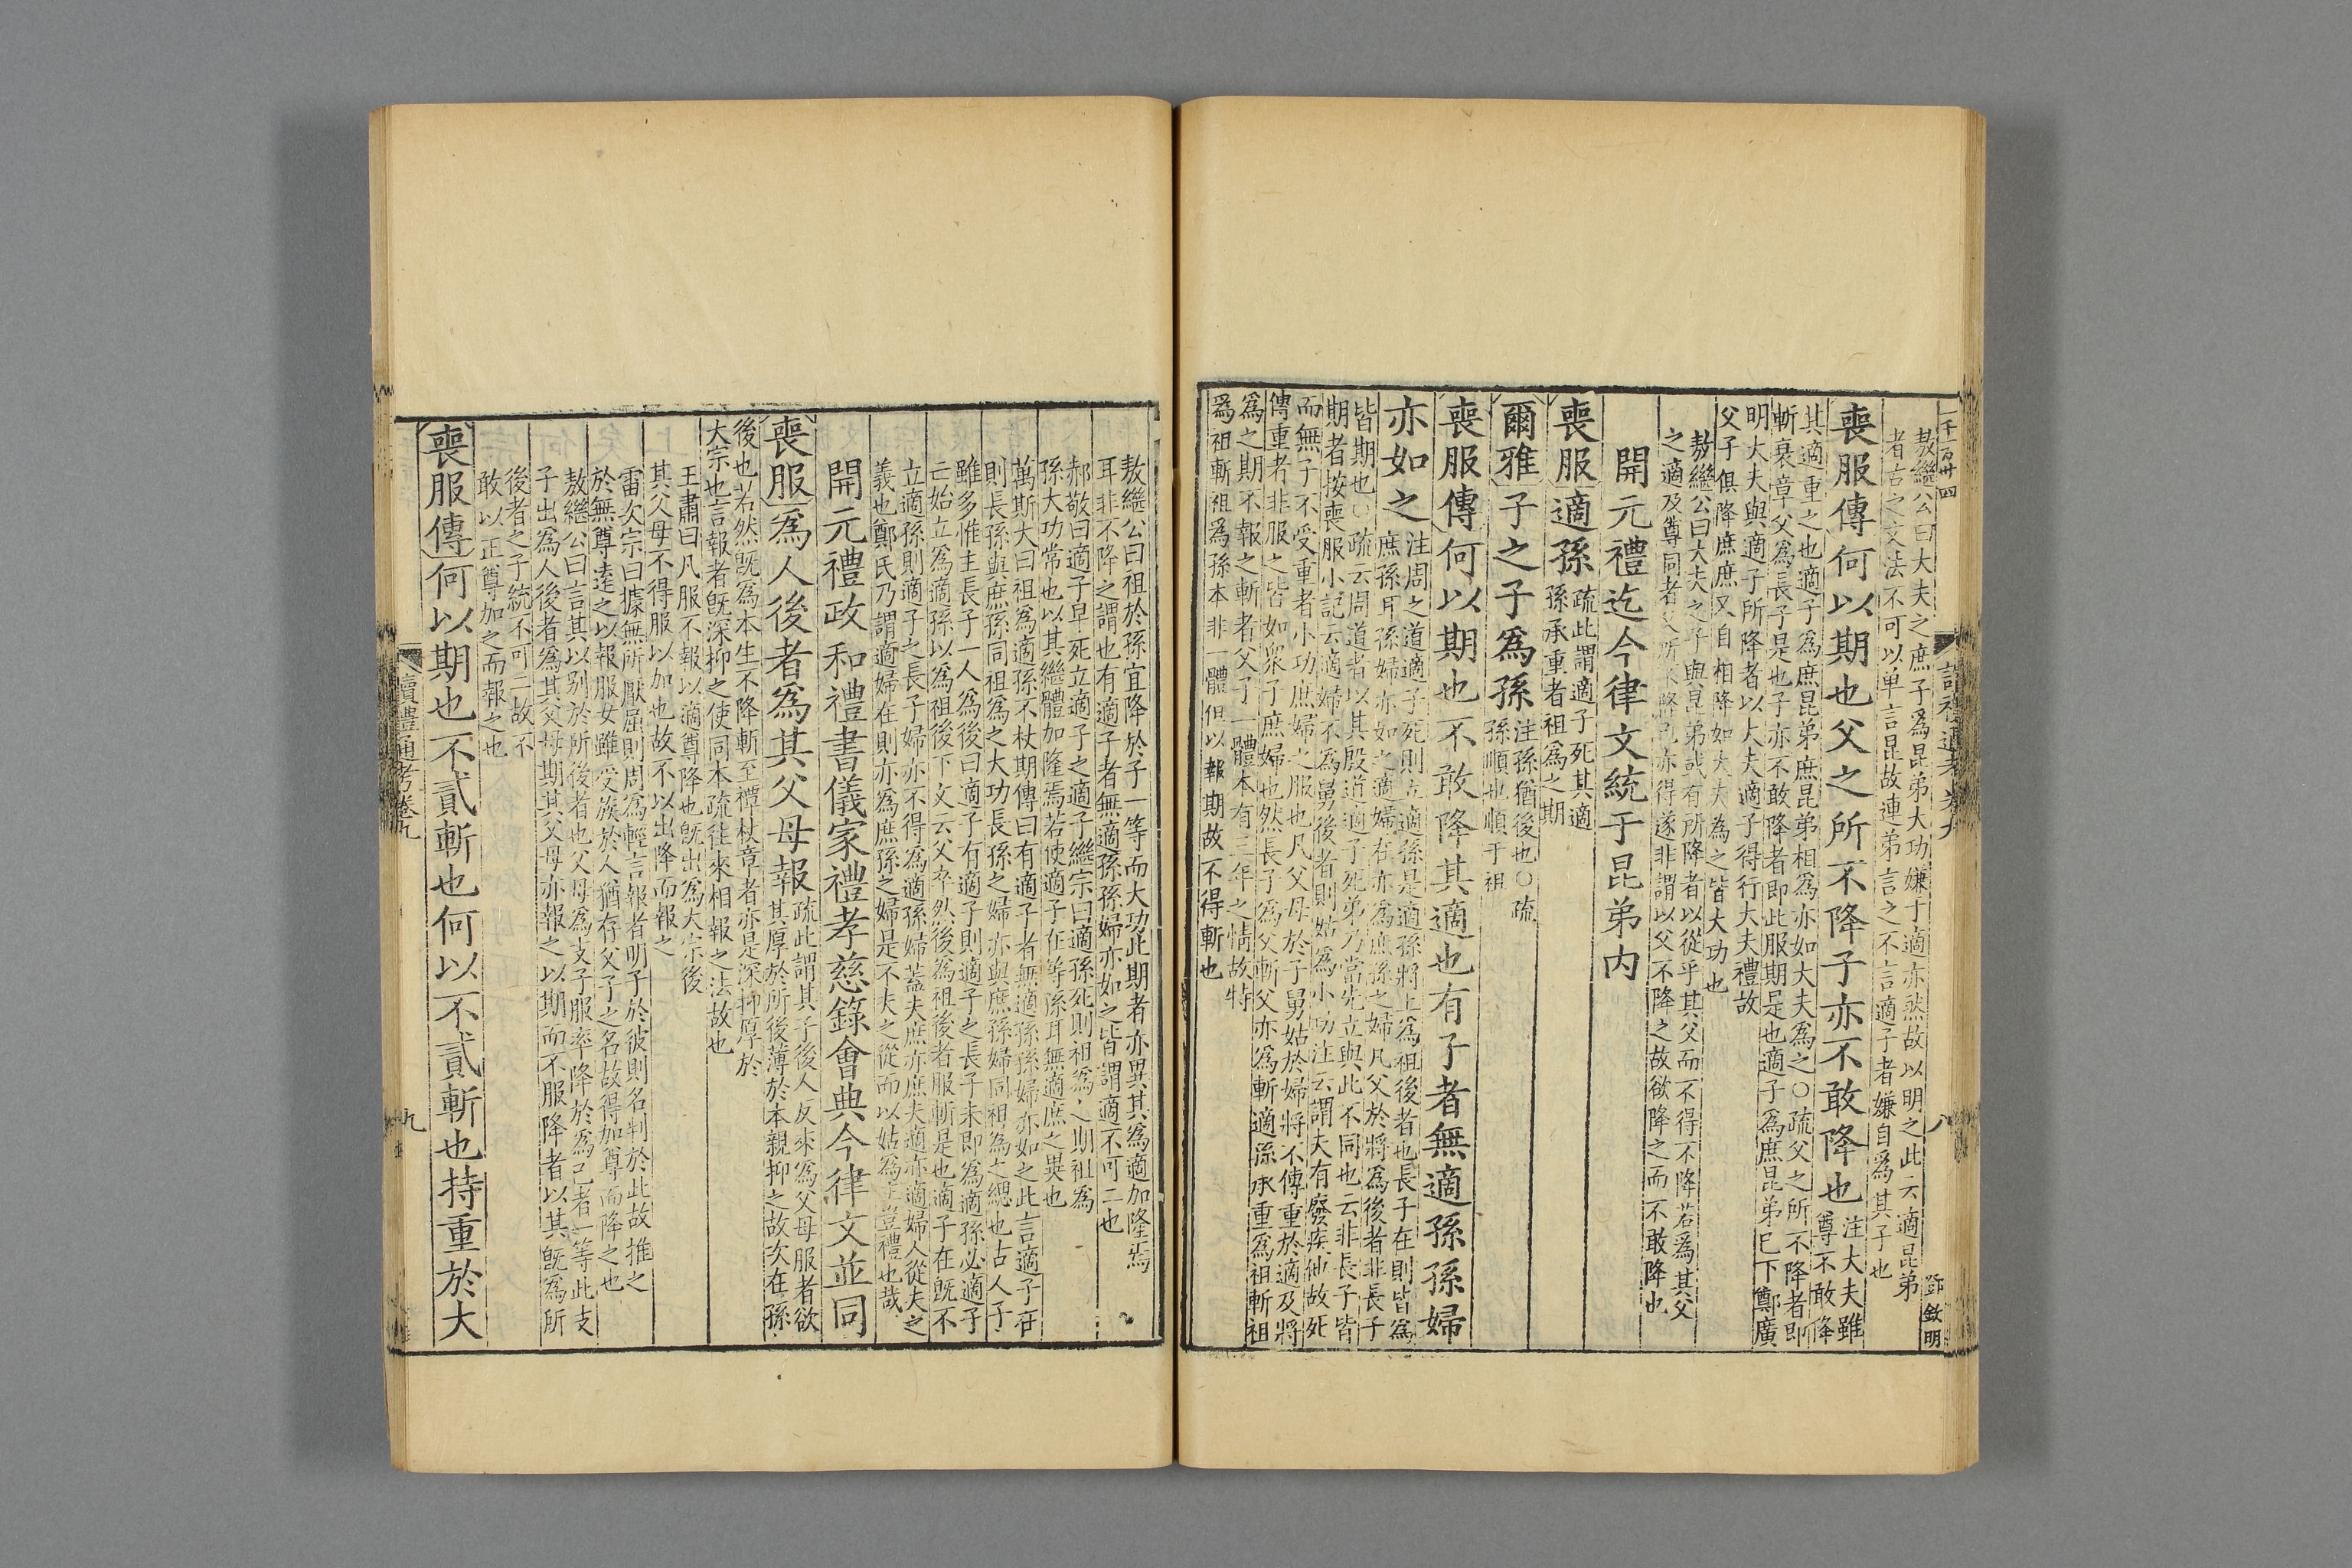 敖繼公曰大夫之庶子爲昆弟大功嫌于適亦然故以明之此云適昆弟
者古之文法不可以单言昆故連弟言之不言適子者嫌自爲其子也
喪服傳何以期也父之所不降子亦不敢降也
注大夫雖
尊不敢降
其適重之也適子爲庶昆弟庶昆弟相爲亦如大夫爲之○疏父之所不降者即
斬衰章父爲長子是也子亦不敢降者即此服期是也適子爲庶昆弟已下鄭廣
明大夫與適子所降者以大夫適子得行大夫禮故
父子俱降庶庶又自相降如大夫為之皆大功也
敖繼公曰大夫之子與昆弟或有所降者以從乎其父而不得不降若爲其父
之適及尊同者父所不降己亦得遂非謂以父不降之故欲降之而不敢降也
開元禮迄今律文統于昆弟内
喪服適孫
疏此謂適子死其適
孫承重者祖爲之期
爾雅子之子爲孫
注孫猶後也○疏
孫順也順于祖
喪服傳何以期也不敢降其適也有子者無適孫孫婦
亦如之
注周之道適子死則立適孫是適孫將上為祖後者也長子在則皆爲
庶孫耳孫婦亦如之適婦在亦爲庶孫之婦凡父於將爲後者非長子
皆期也○疏云周道者以其殷道適子死弟乃當先立與此不同也云非長子皆
期者按喪服小記云適婦不為舅後者則姑為小功注云謂夫有廢疾他故死
而無子不受重者小功庶婦之服也凡父母於子舅姑於婦將不傳重於適及將
傳重者非服之皆如衆子庶婦也然長子爲父斬父亦爲斬適孫承重爲祖斬祖
爲之期不報之斬者父子一體本有三年之情故特
爲祖斬祖爲孫本非一體但以報期故不得斬也
敖繼公曰祖於孫宜降於子一等而大功此期者亦異其為適加隆焉
耳非不降之謂也有適子者無適孫孫婦亦如之皆謂適不可二也
郝敬曰適子早死立適子之適子繼宗曰適孫死則祖爲之期祖爲
孫大功常也以其繼體加隆焉若使適子在等孫耳無適庶之異也
萬斯大曰祖爲適孫不杖期傳曰有適子者無適孫孫婦亦如之此言適子在
則長孫與庶孫同祖爲之大功長孫之婦亦與庶孫婦同祖為之緦也古人子
雖多惟主長子一人爲後曰適子有適子則適子之長子未即為適孫必適子
亡始立爲適孫以爲祖後下文云父卒然後為祖後者服斬是也適子在既不
立適孫則適子之長子婦亦不得為適孫婦蓋夫庶亦庶夫適亦適婦人從夫之
義也鄭氏乃謂適婦在則亦爲庶孫之婦是不夫之從而以姑爲主豈禮也哉
開元禮政和禮書儀家禮孝慈錄會典今律文並同
喪服爲人後者爲其父母報
疏此謂其子後人反來爲父母服者欲
其厚於所後薄於本親抑之故次在孫
後也若然既爲本生不降斬至禮杖章者亦是深抑厚於
大宗也言報者既深抑之使同本疏往來相報之法故也
王肅曰凡服不報以適尊降也既出爲大宗後
其父母不得服以加也故不以出降而報之
雷次宗曰據無所厭屈則周爲輕言報者明子於彼則名判於此故推之
於無尊遠之以報服女雖受族於人猶存父子之名故得加尊而降之也
敖繼公曰言其以别於所後者也父母為支子服率降於為己者一等此支
子出爲人後者爲其父母期其父母亦報之以期而不服降者以其既爲所
後者之子統不可二故不
敢以正尊加之而報之也
喪服傳何以期也不貳斬也何以不貳斬也持重於大
讀禮通考卷九
九